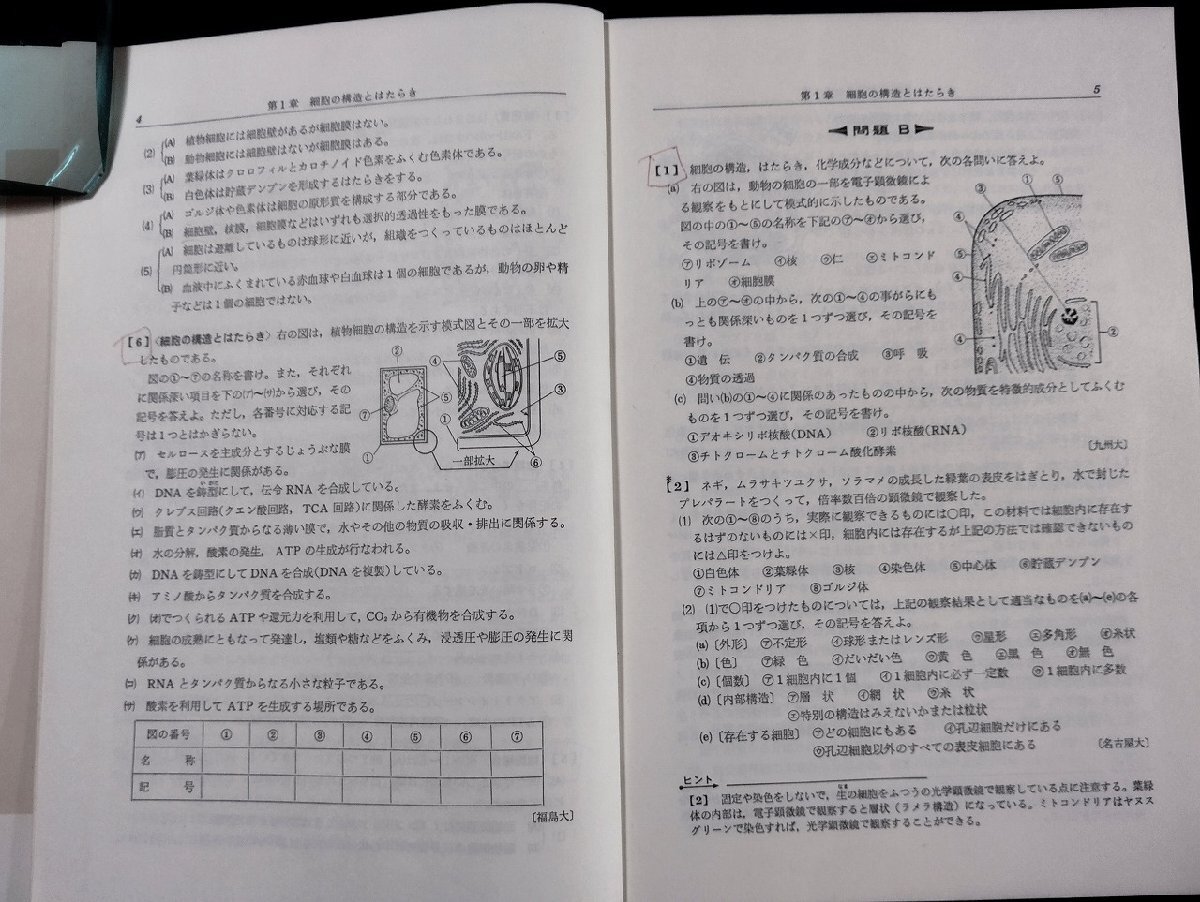 4
第1章 細胞の構造とはたらき
(2) (A) 植物細胞には細胞壁があるが細胞膜はない。
(B) 動物細胞には細胞壁はないが細胞膜はある。
(3) (A) 葉緑体はクロロフィルとカロチノイド色素をふくむ色素体である。
(B) 白色体は貯蔵デンプンを形成するはたらきをする。
(4) (A) ゴルジ体や色素体は細胞の原形質を構成する部分である。
(B) 細胞壁，核膜，細胞膜などはいずれも選択的透過性をもった膜である。
(5) (A) 細胞は遊離しているものは球形に近いが，組織をつくっているものはほとんど
円筒形に近い。
(B) 血液中にふくまれている赤血球や白血球は1個の細胞であるが，動物の卵や精
子などは1個の細胞ではない。
[6] 〈細胞の構造とはたらき〉右の図は，植物細胞の構造を示す模式図とその一部を拡大
したものである。
図の①～⑦の名称を書け。また，それぞれ
に関係深い項目を下の(ア)～(サ)から選び，その
記号を答えよ。ただし，各番号に対応する記
号は1つとはかぎらない。
(ア) セルロースを主成分とするじょうぶな膜
で，膨圧の発生に関係がある。
② ④ ⑤ ③ ⑦ ⑤ ① ① ⑥
一部拡大
(イ) DNAを鋳型にして，伝令RNAを合成している。
(ウ) クレブス回路(クエン酸回路，TCA回路)に関係した酵素をふくむ。
(エ) 脂質とタンパク質からなる薄い膜で，水やその他の物質の吸収・排出に関係する。
(オ) 水の分解，酸素の発生，ATPの生成が行なわれる。
(カ) DNAを鋳型にしてDNAを合成(DNAを複製)している。
(キ) アミノ酸からタンパク質を合成する。
(ク) (オ)でつくられるATPや還元力を利用して，CO₂から有機物を合成する。
(ケ) 細胞の成熟にともなって発達し，塩類や糖などをふくみ，浸透圧や膨圧の発生に関
係がある。
(コ) RNAとタンパク質からなる小さな粒子である。
(サ) 酸素を利用してATPを生成する場所である。
図の番号 ① ② ③ ④ ⑤ ⑥ ⑦
名 称
記 号
〔福島大〕
第1章 細胞の構造とはたらき
5
問題 B
[1] 細胞の構造，はたらき，化学成分などについて，次の各問いに答えよ。
(a) 右の図は，動物の細胞の一部を電子顕微鏡によ
る観察をもとにして模式的に示したものである。
図の中の①～⑤の名称を下記の㋐～㋔から選び，
その記号を書け。
㋐リボゾーム ㋑核 ㋒仁 ㋓ミトコンド
リア ㋔細胞膜
(b) 上の㋐～㋔の中から，次の①～④の事がらにも
っとも関係深いものを1つずつ選び，その記号を
書け。
①遺 伝 ②タンパク質の合成 ③呼 吸
④物質の透過
③ ① ⑤ ④ ⑤ ④ ④ ②
(c) 問い(b)の①～④に関係のあったものの中から，次の物質を特徴的成分としてふくむ
ものを1つずつ選び，その記号を書け。
①デオキシリボ核酸(DNA) ②リボ核酸(RNA)
③チトクロームとチトクローム酸化酵素
〔九州大〕
[2] ネギ，ムラサキツユクサ，ソラマメの成長した緑葉の表皮をはぎとり，水で封じた
プレパラートをつくって，倍率数百倍の顕微鏡で観察した。
(1) 次の①～⑧のうち，実際に観察できるものには○印，この材料では細胞内に存在す
るはずのないものには×印，細胞内には存在するが上記の方法では確認できないもの
には△印をつけよ。
①白色体 ②葉緑体 ③核 ④染色体 ⑤中心体 ⑥貯蔵デンプン
⑦ミトコンドリア ⑧ゴルジ体
(2) (1)で○印をつけたものについては，上記の観察結果として適当なものを(a)～(e)の各
項から1つずつ選び，その記号を答えよ。
(a)〔外形〕 ㋐不定形 ㋑球形またはレンズ形 ㋒星形 ㋓多角形 ㋔糸状
(b)〔色〕 ㋐緑 色 ㋑だいだい色 ㋒黄 色 ㋓黒 色 ㋔無 色
(c)〔個数〕 ㋐1細胞内に1個 ㋑1細胞内に必ず一定数 ㋒1細胞内に多数
(d)〔内部構造〕 ㋐層 状 ㋑網 状 ㋒糸 状
㋓特別の構造はみえないかまたは粒状
(e)〔存在する細胞〕 ㋐どの細胞にもある ㋑孔辺細胞だけにある
㋒孔辺細胞以外のすべての表皮細胞にある
〔名古屋大〕
ヒント
[2] 固定や染色をしないで，生の細胞をふつうの光学顕微鏡で観察している点に注意する。葉緑
体の内部は，電子顕微鏡で観察すると層状(ラメラ構造)になっている。ミトコンドリアはヤヌス
グリーンで染色すれば，光学顕微鏡で観察することができる。